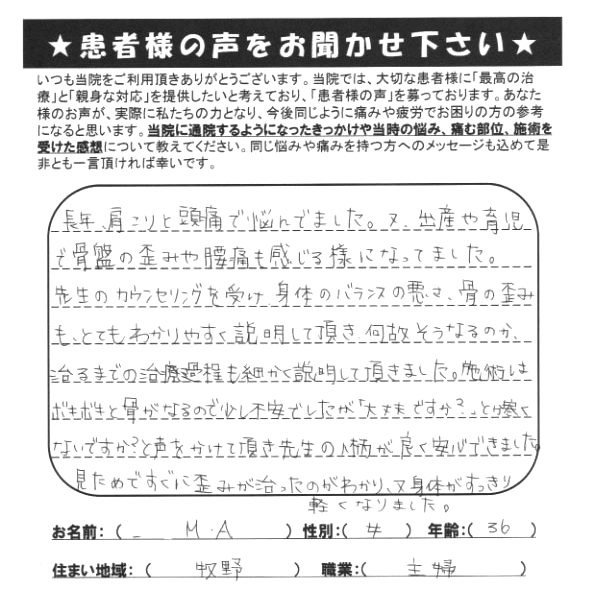 ★患者様の声をお聞かせ下さい★
いつも当院をご利用頂きありがとうございます。当院では、大切な患者様に「最高の治
療」と「親身な対応」を提供したいと考えており、「患者様の声」を募っております。あなた
様のお声が、実際に私たちの力となり、今後同じように痛みや疲労でお困りの方の参考
になると思います。当院に通院するようになったきっかけや当時の悩み、痛む部位、施術を
受けた感想について教えてください。同じ悩みや痛みを持つ方へのメッセージも込めて是
非とも一言頂ければ幸いです。
長年、肩こりと頭痛で悩んでました。又、出産や育児
で骨盤の歪みや腰痛も感じる様になってました。
先生のカウンセリングを受け、身体のバランスの悪さ、骨の歪み
も、とてもわかりやすく説明して頂き、何故そうなるのか、
治るまでの治療過程も細かく説明して頂きました。施術は
ボキボキと骨がなるので少し不安でしたが「大丈夫ですか?」とか「痛く
ないですか?」と声をかけて頂き先生の人柄が良く安心できました。
見ためですぐに歪みが治ったのがわかり、又身体がすっきり
軽くなりました。
お名前:( M.A ) 性別:( 女 ) 年齢:( 36 )
住まい地域: ( 牧野 ) 職業:( 主婦 )